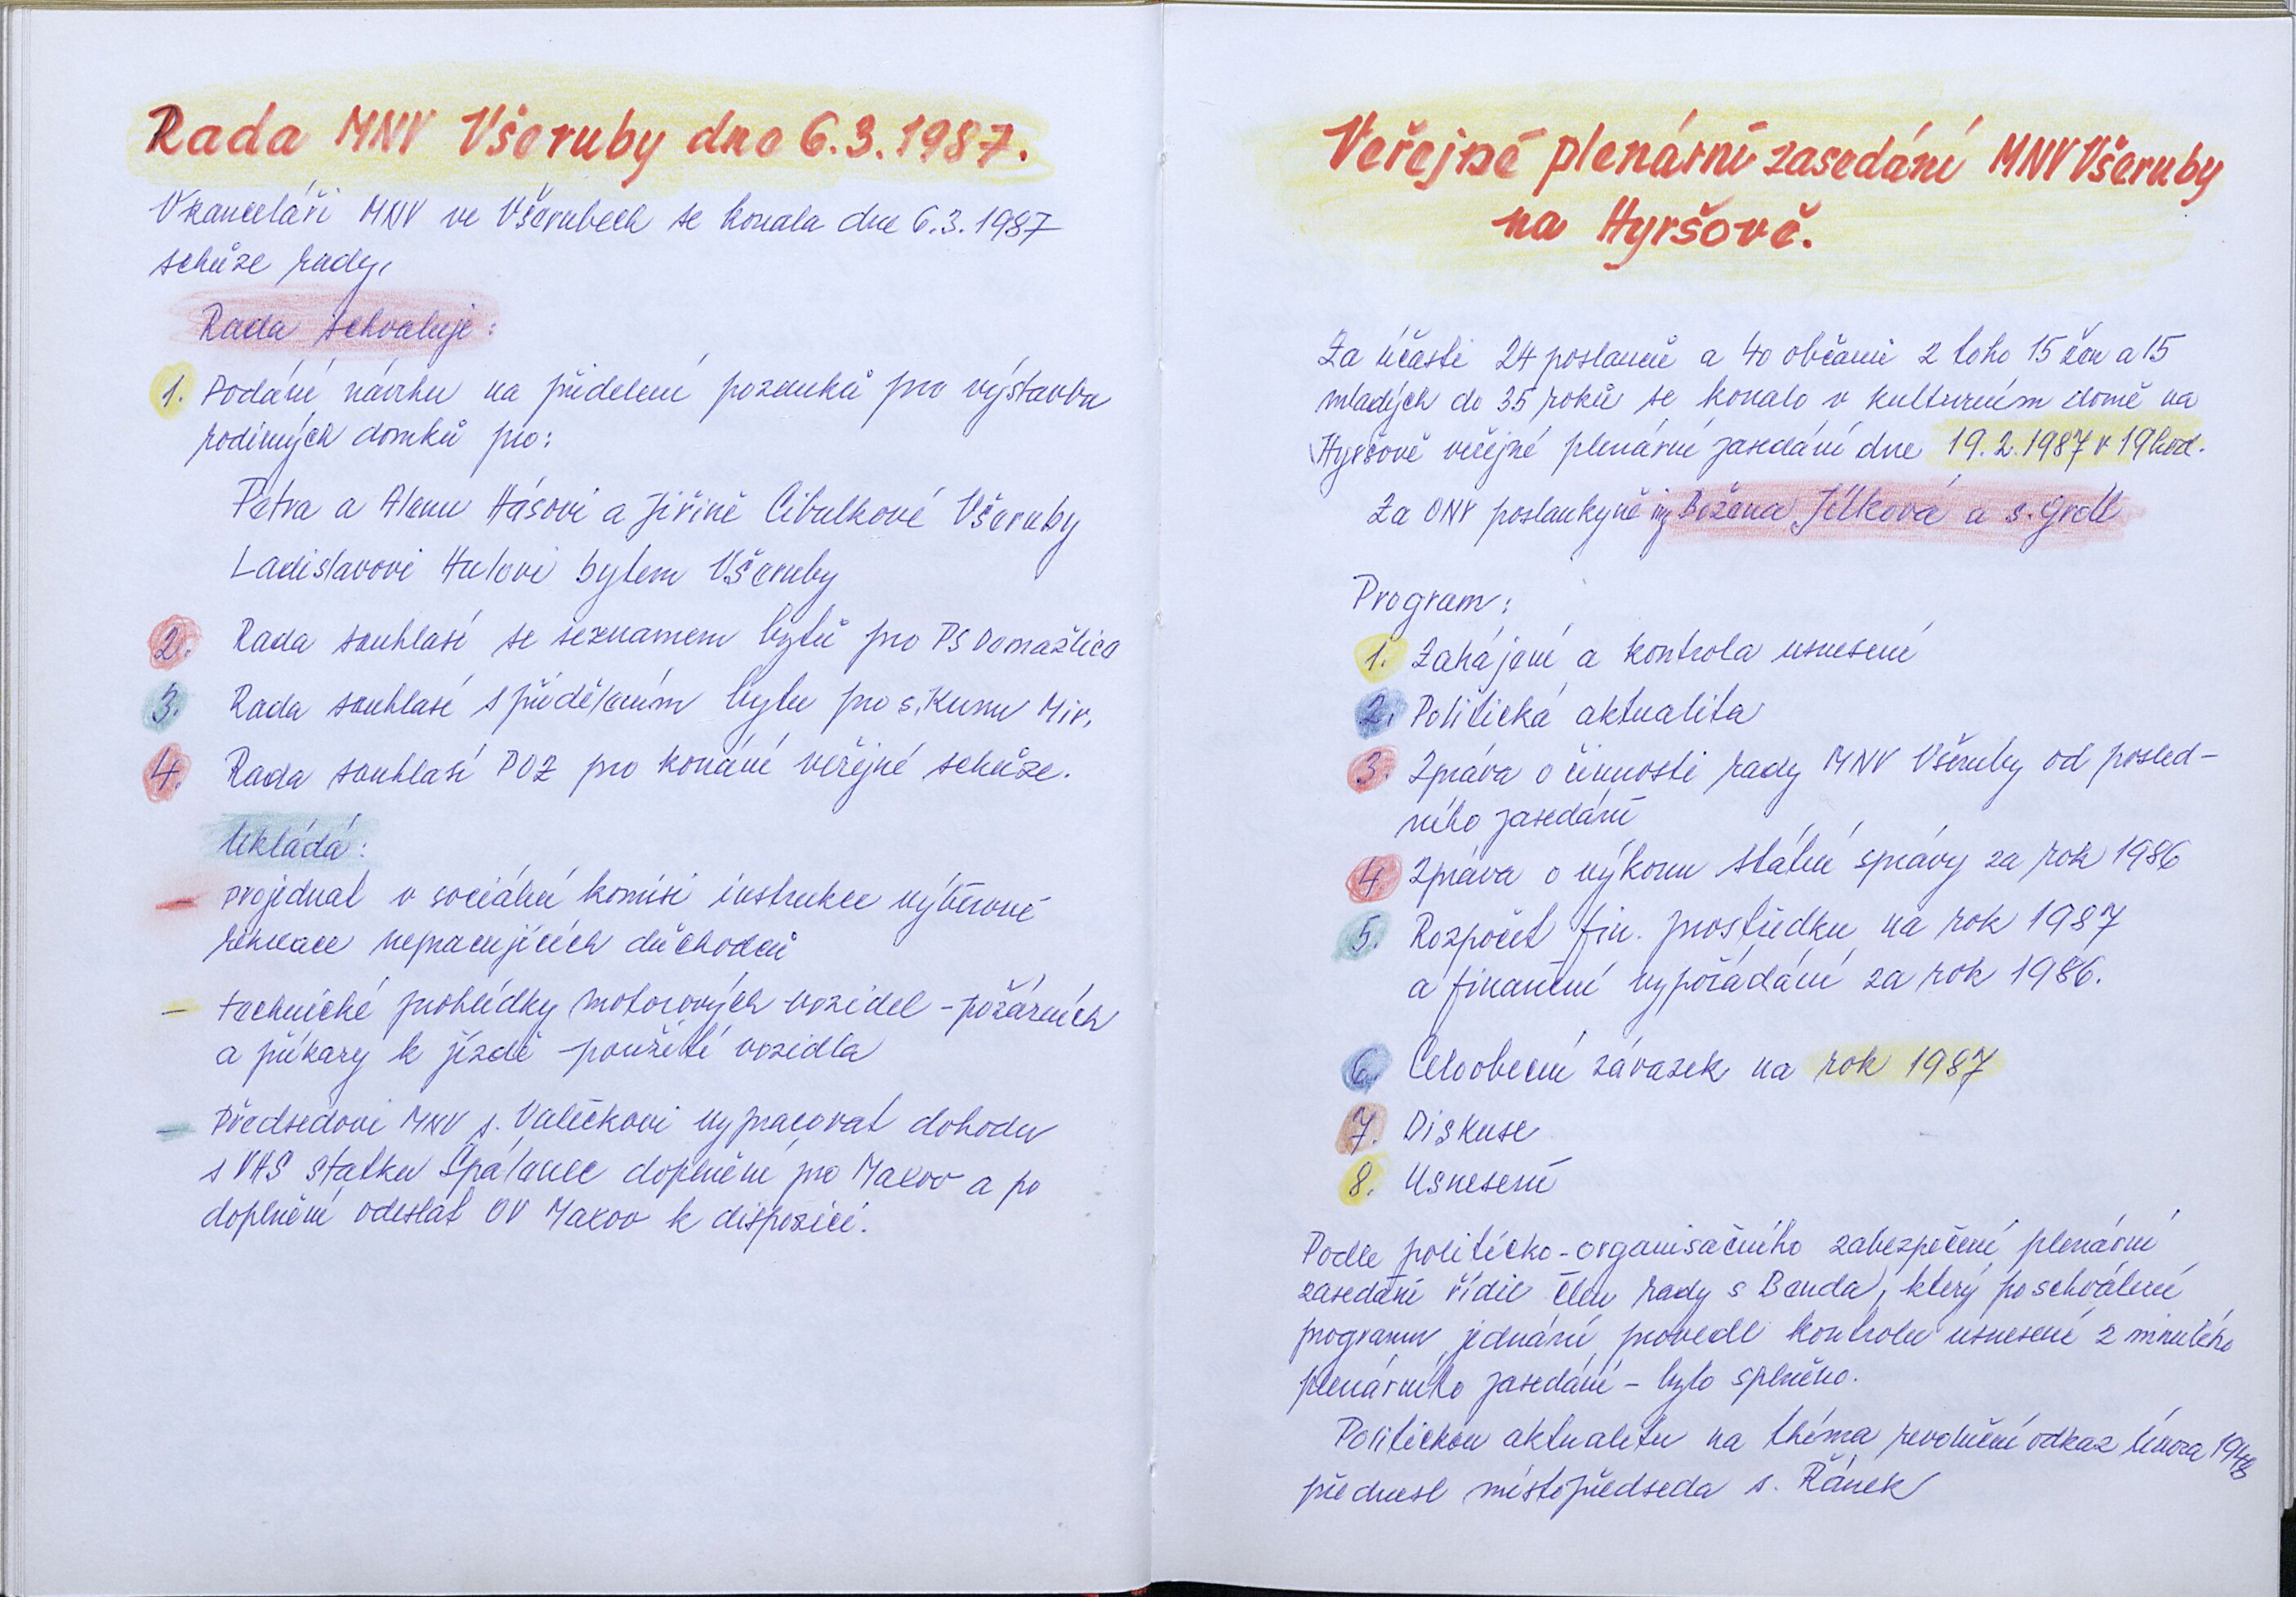 Rada MNV Všeruby dne 6.3.1987.
V kanceláři MNV ve Všerubech se konala dne 6.3.1987
schůze rady.
Rada schvaluje:
1. Podání návrhu na přidelení pozemků pro výstavbu
rodinných domků pro:
Petra a Alenu Hásovi a Jiřině Cibulkové Všeruby
Ladislavovi Hulovi bytem Všeruby
2. Rada souhlasí se seznamem bytů pro PS Domažlice
3. Rada souhlasí s přidělením bytu pro s. Kunu Mir.
4. Rada souhlasí POZ pro konání veřejné schůze.
Ukládá:
- projednat v sociální komisi instrukce výběrové
rekreace nepracujících důchodců
- technické prohlídky motorových vozidel - požárních
a příkazy k jízdě - použití vozidla
- Předsedovi MNV s. Valečkovi vypracovat dohodu
s VHS statku Spálenec doplnění pro Maxov a po
doplnění odeslat OV Maxov k dispozici.
Veřejné plenární zasedání MNV Všeruby
na Hyršově.
Za účasti 24 poslanců a 40 občanů z toho 15 žen a 15
mladých do 35 roků se konalo v kulturním domě na
Hyršově veřejné plenární zasedání dne 19.2.1987 v 19 hod.
Za ONV poslankyně Božena Jílková a s. Grótl
Program:
1. Zahájení a kontrola usnesení
2. Politická aktualita
3. Zpráva o činnosti rady MNV Všeruby od posled-
ního zasedání
4. Zpráva o výkonu státní správy za rok 1986
5. Rozpočet fin. prostředků na rok 1987
a finanční vypořádání za rok 1986.
6. Celoobecní závazek na rok 1987
7. Diskuse
8. Usnesení
Podle politicko-organisačního zabezpečení plenární
zasedání řídil člen rady s Banda, který po schválení
programu jednání provedl kontrolu usnesení z minulého
plenárního zasedání - bylo splněno.
Politickou aktualitu na théma revoluční odkaz února 1948
přednesl místopředseda s. Řánek